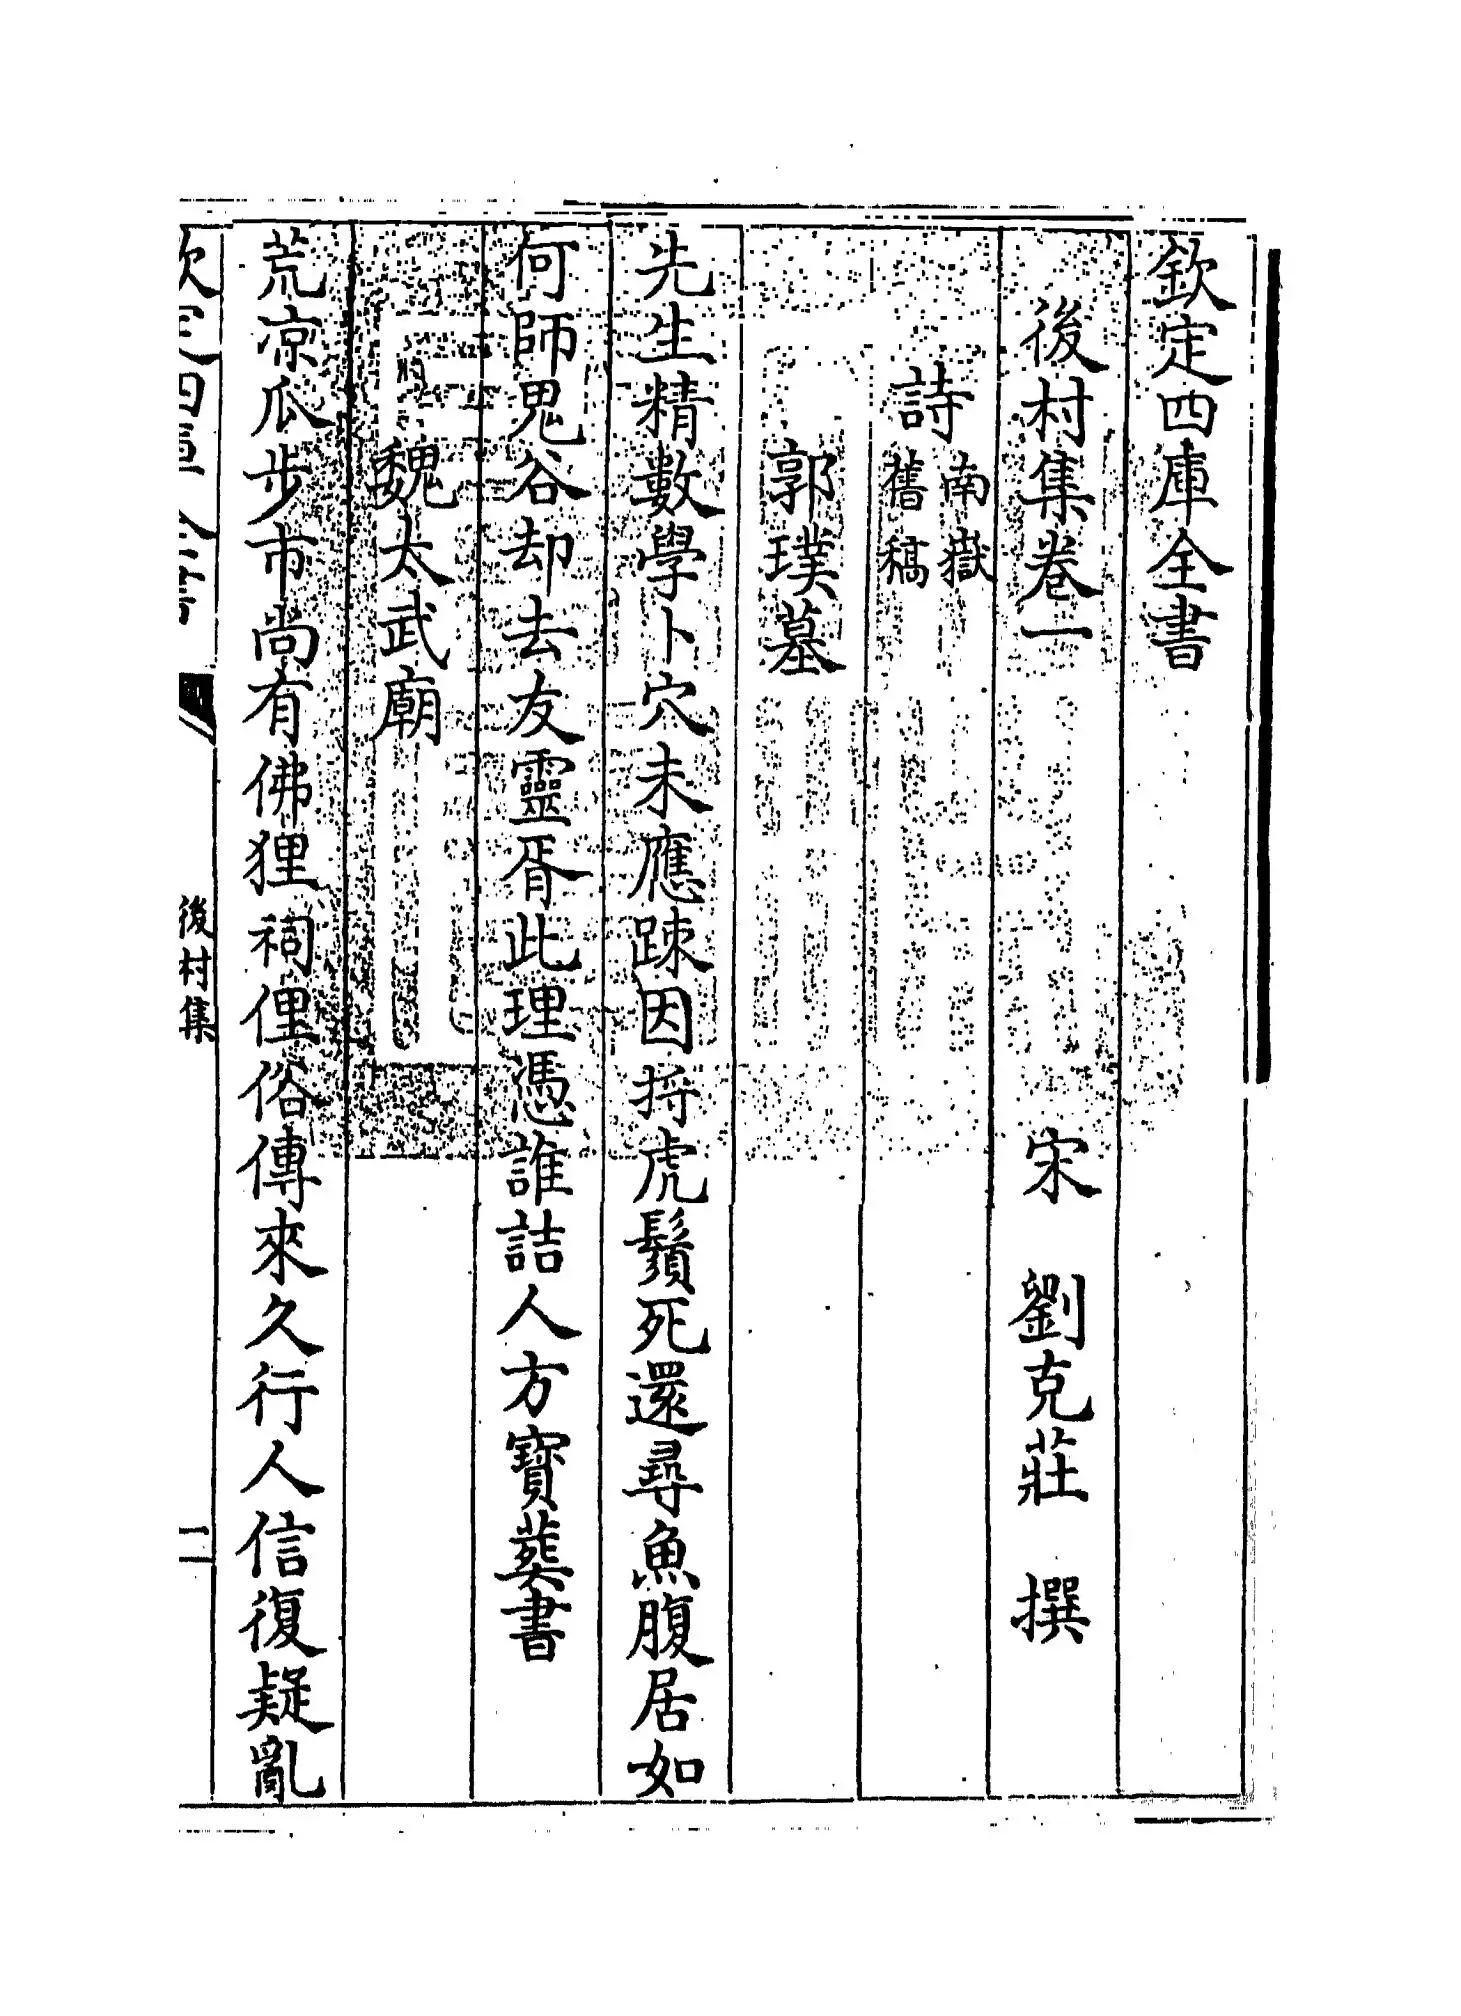 欽定四庫全書
後村集卷一
宋 劉克莊 撰
詩
南嶽
舊稿
郭璞墓
先生精數學卜穴未應踈因捋虎鬚死還尋魚腹居如
何師鬼谷却去友靈胥此理憑誰詰人方寶葬書
魏太武廟
荒凉瓜步市尚有佛狸祠俚俗傳來久行人信復疑亂
欽定四庫全書
後村集
一